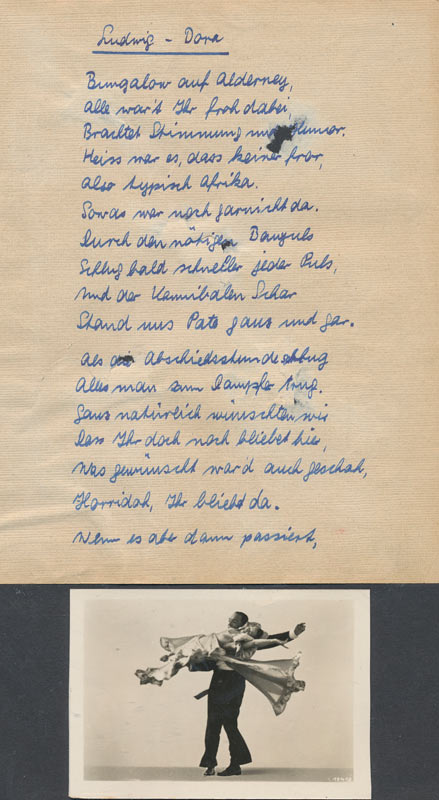 Ludwig - Dora
Bungalow auf Alderney,
Alle war't Ihr froh dabei,
Brachtet Stimmung und Humor.
Heiss war es, dass keiner fror,
Also typisch Afrika.
Sowas war noch garnicht da.
Durch den nötigen Banyuls
Schlug bald schneller jeder Puls,
Und der Kannibalen Schar
Stand uns Pate ganz und gar.
Als die Abschiedsstunde schlug
Alles man zum Dampfer trug.
Ganz natürlich wünschten wir
Dass Ihr doch noch bliebet hier,
Was gewünscht ward auch geschah,
Horridoh, Ihr bliebt da.
Wenn es aber dann passiert,